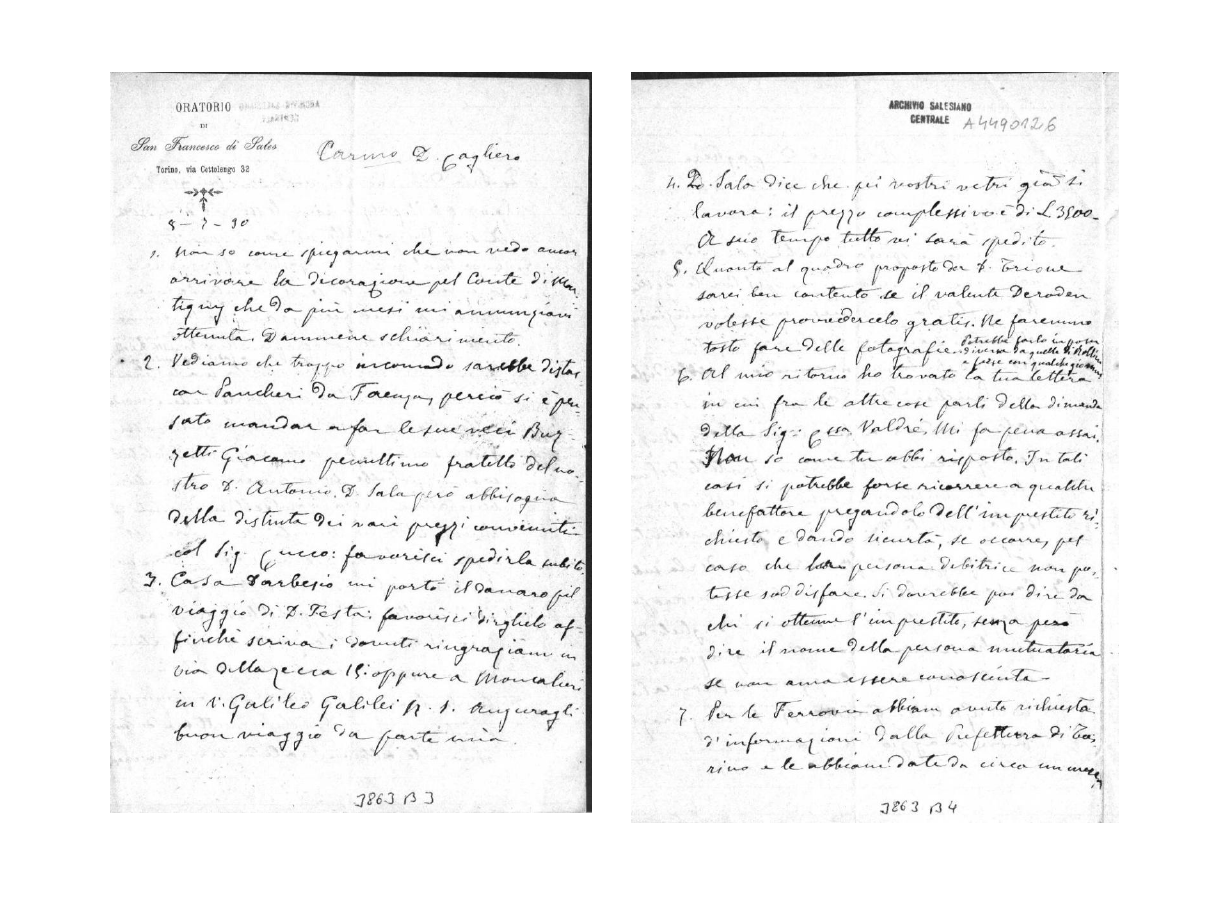 ORATORIO
DI
San Francesco di Sales
Torino, via Cottolengo 32
ARCHIVIO SALESIANO
CENTRALE
Carmo D. Cagliero
8-7-90
1. Non so come spiegarmi che non vedo ancor
arrivare la decorazione pel Conte di Mar-
tigny che da più mesi mi annunziavi
ottenuta. Dammene schiarimento.
2. Vediamo che troppo incomodo sarebbe distac
car Pancheri da Faenza, perciò si è pen
sato mandar a far le sue veci Buz-
zetti Giacomo penultimo fratello del no-
stro D. Antonio. D. Sala però abbisogna
della distinta dei vari prezzi convenuti
col Sig. Cucco: favorisci spedirla subito.
3. Casa Tarbesio mi portò il danaro pel
viaggio di D. Festa: favorisci dirglielo af-
finchè scriva i dovuti ringraziam in
via della zecca 15: oppure a Moncalieri
in v. Galileo Galilei N. 1. Auguragli
buon viaggio da parte mia.
J863 B 3
ARCHIVIO SALESIANO
CENTRALE A4490126
4. D. Sala dice che pei vostri vetri già si
lavora: il prezzo complessivo è di L. 3500-
A suo tempo tutto vi sarà spedito.
5. Quanto al quadro proposto da D. Trione
sarei ben contento se il valente
volesse provvedercelo gratis. Ne faremmo
tosto fare delle fotografie. Potrebbe farlo in posa
diversa da quello di Rollini
6. Al mio ritorno ho trovato la tua lettera
in cui fra le altre cose parli della dimanda
della Sig. Cssa Valdré. Mi fa pena assai.
Non so come tu abbi risposto. In tali
casi si potrebbe forse ricorrere a qualche
benefattore pregandolo dell'imprestito ri-
chiesto e dando sicurtà, se occorre, pel
caso che la persona debitrice non po-
tesse soddisfare. Si dovrebbe poi dire da
chi si ottenne l'imprestito, senza però
dire il nome della persona mutuataria
se non ama essere conosciuta.
7. Per le Ferrovie abbiam avuto richiesta
d'informazioni dalla Prefettura di To-
rino e le abbiam date da circa un mese
J863 B4